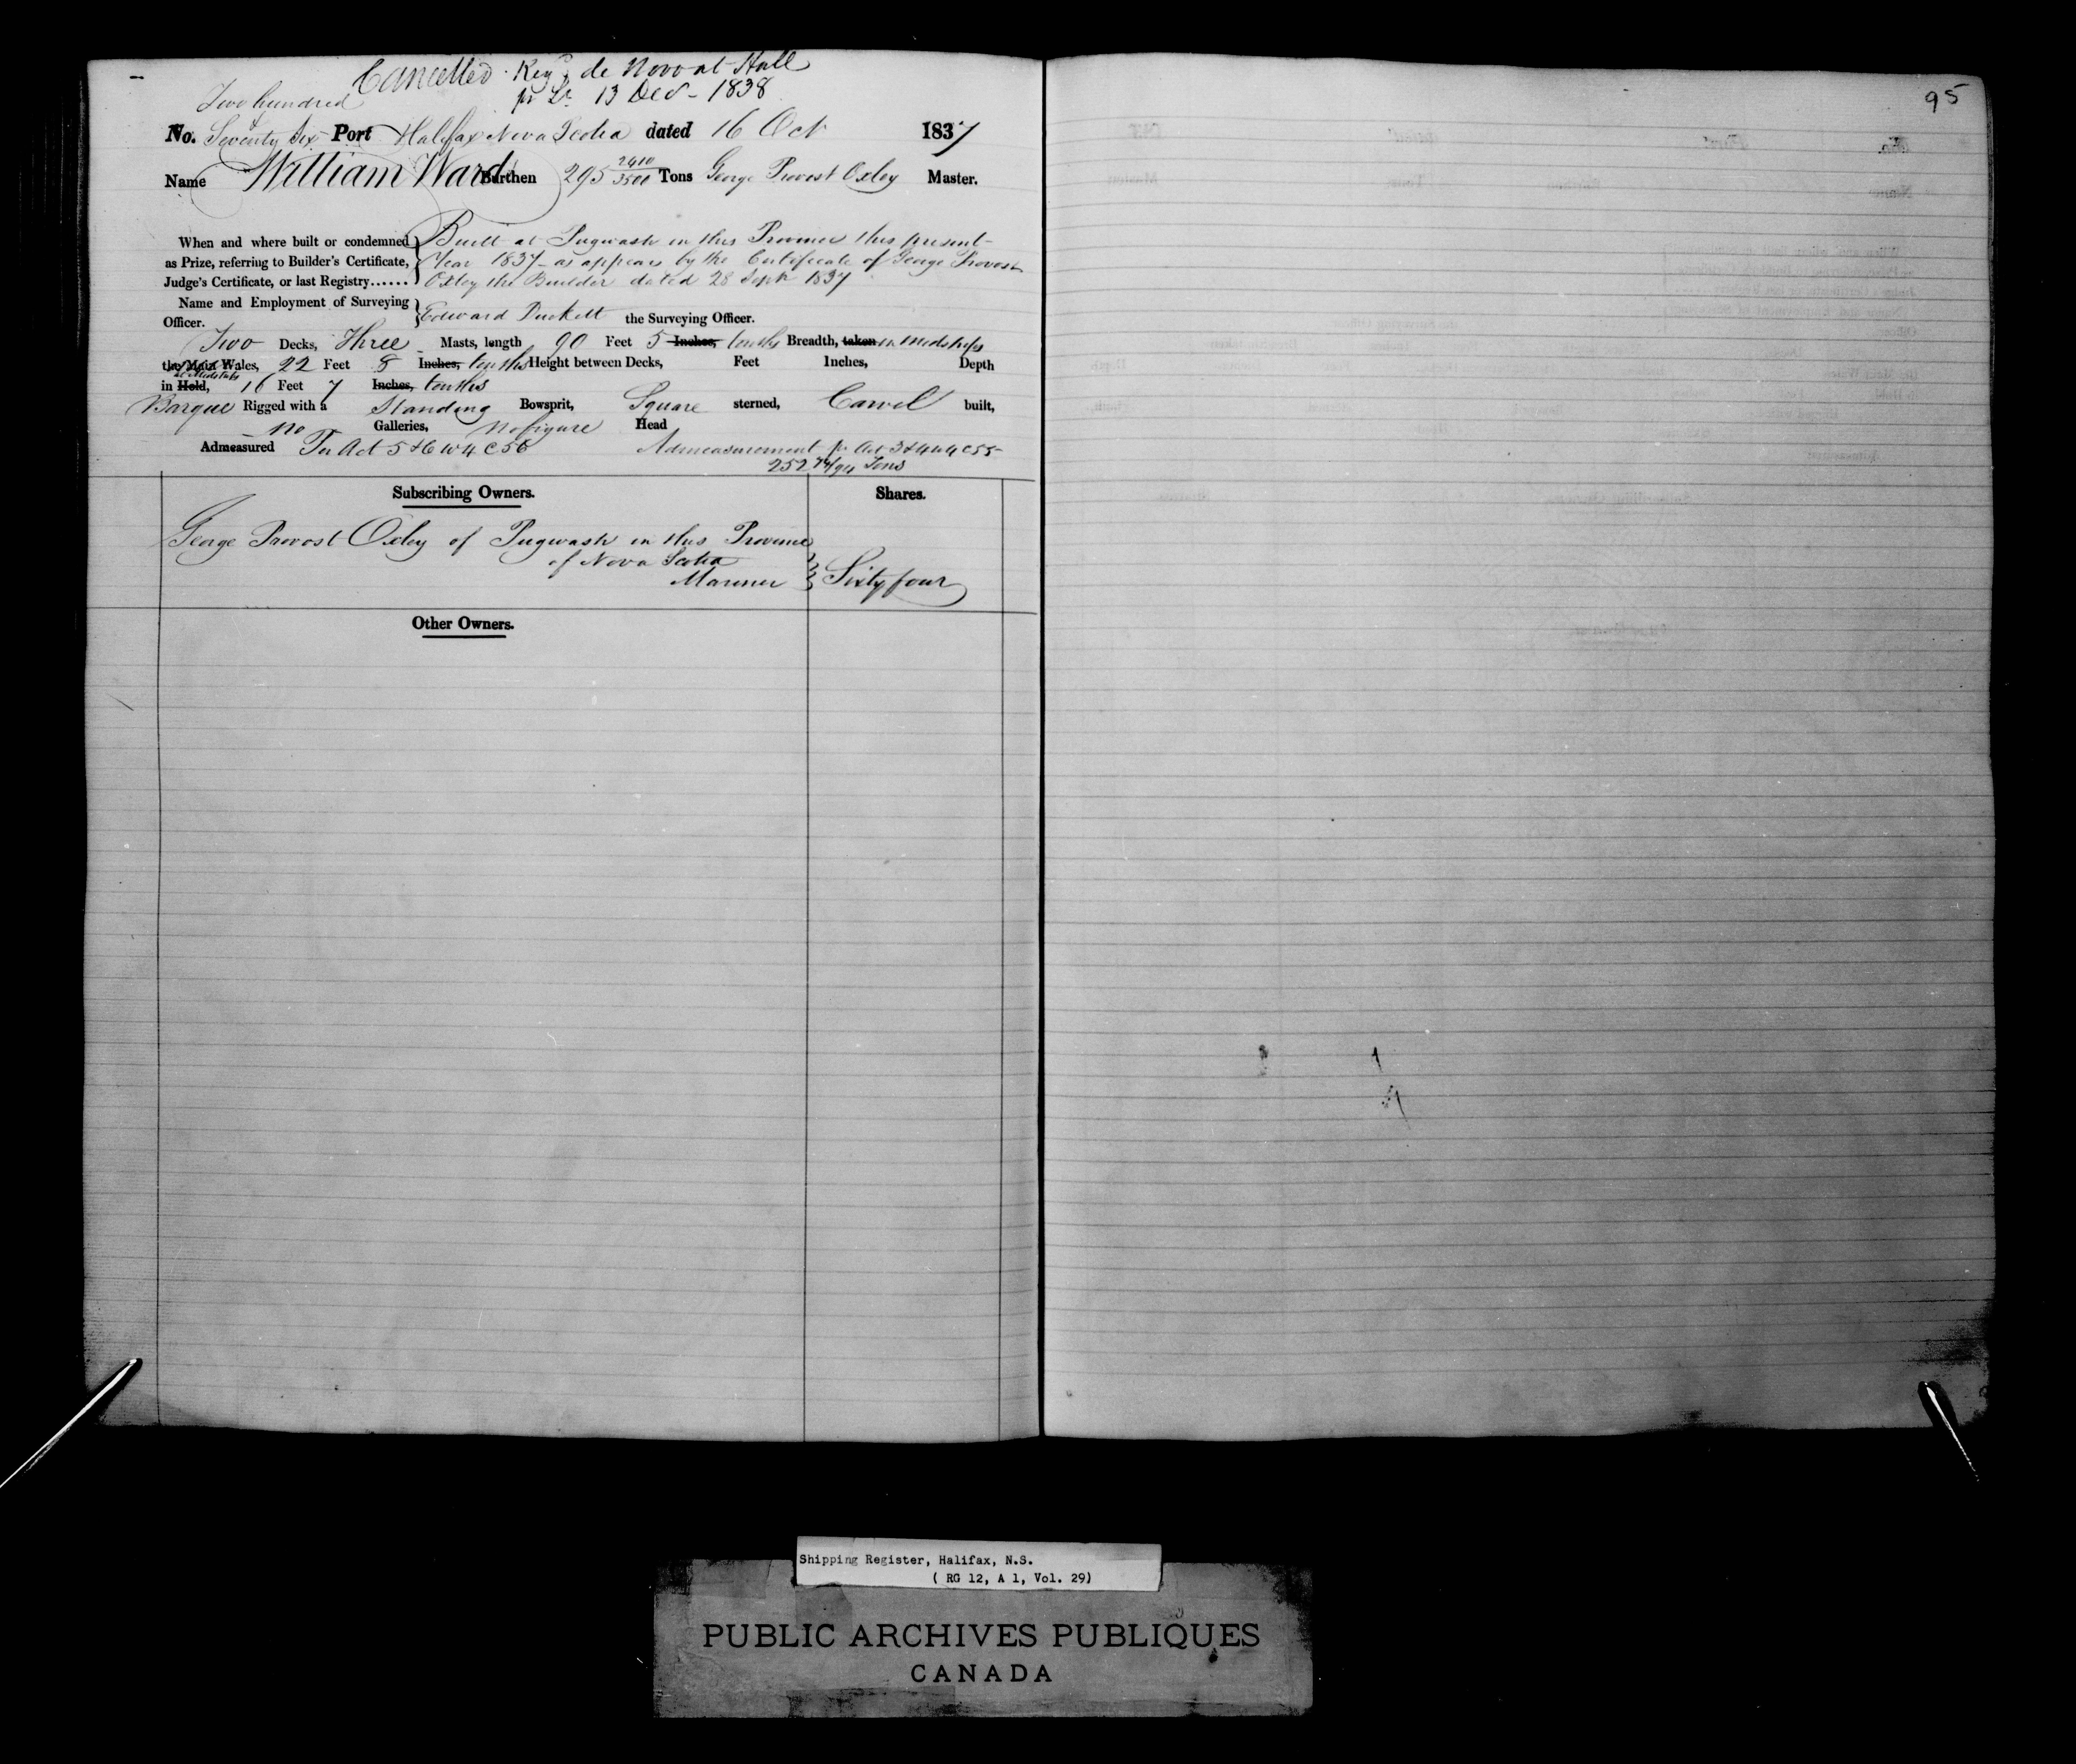 Cancelled. Reg'd de Novo at Hull
pr Lr 13 Decr 1838
95
Two hundred
&
No. Seventy Six Port Halifax Nova Scotia dated 16 Oct 1837
Name William Ward Burthen 295 2410/3500 Tons George Provost Oxley Master.
When and where built or condemned as Prize, referring to Builder's Certificate, Judge's Certificate, or last Registry......
Built at Pugwash in this Province this present
Year 1837 as appears by the Certificate of George Provost
Oxley the Builder dated 28 Sept 1837
Name and Employment of Surveying Officer.
Edward Duckett the Surveying Officer.
Two Decks, Three Masts, length 90 Feet 5 Inches, tenths Breadth, taken in Midships
the Main Wales, 22 Feet 8 Inches, tenths Height between Decks, Feet Inches, Depth
at Midships
in Hold, 16 Feet 7 Inches, tenths
Barque Rigged with a Standing Bowsprit, Square sterned, Carvel built,
no Galleries, No figure Head
Admeasured Pr Act 5 & 6 W 4 C 56 Admeasurement pr Act 3 & 4 W 4 C 55
252 /94 Tons
Subscribing Owners. Shares.
George Provost Oxley of Pugwash in this Province
of Nova Scotia
Mariner Sixty four
Other Owners.
Shipping Register, Halifax, N.S.
( RG 12, A 1, Vol. 29)
PUBLIC ARCHIVES PUBLIQUES
CANADA